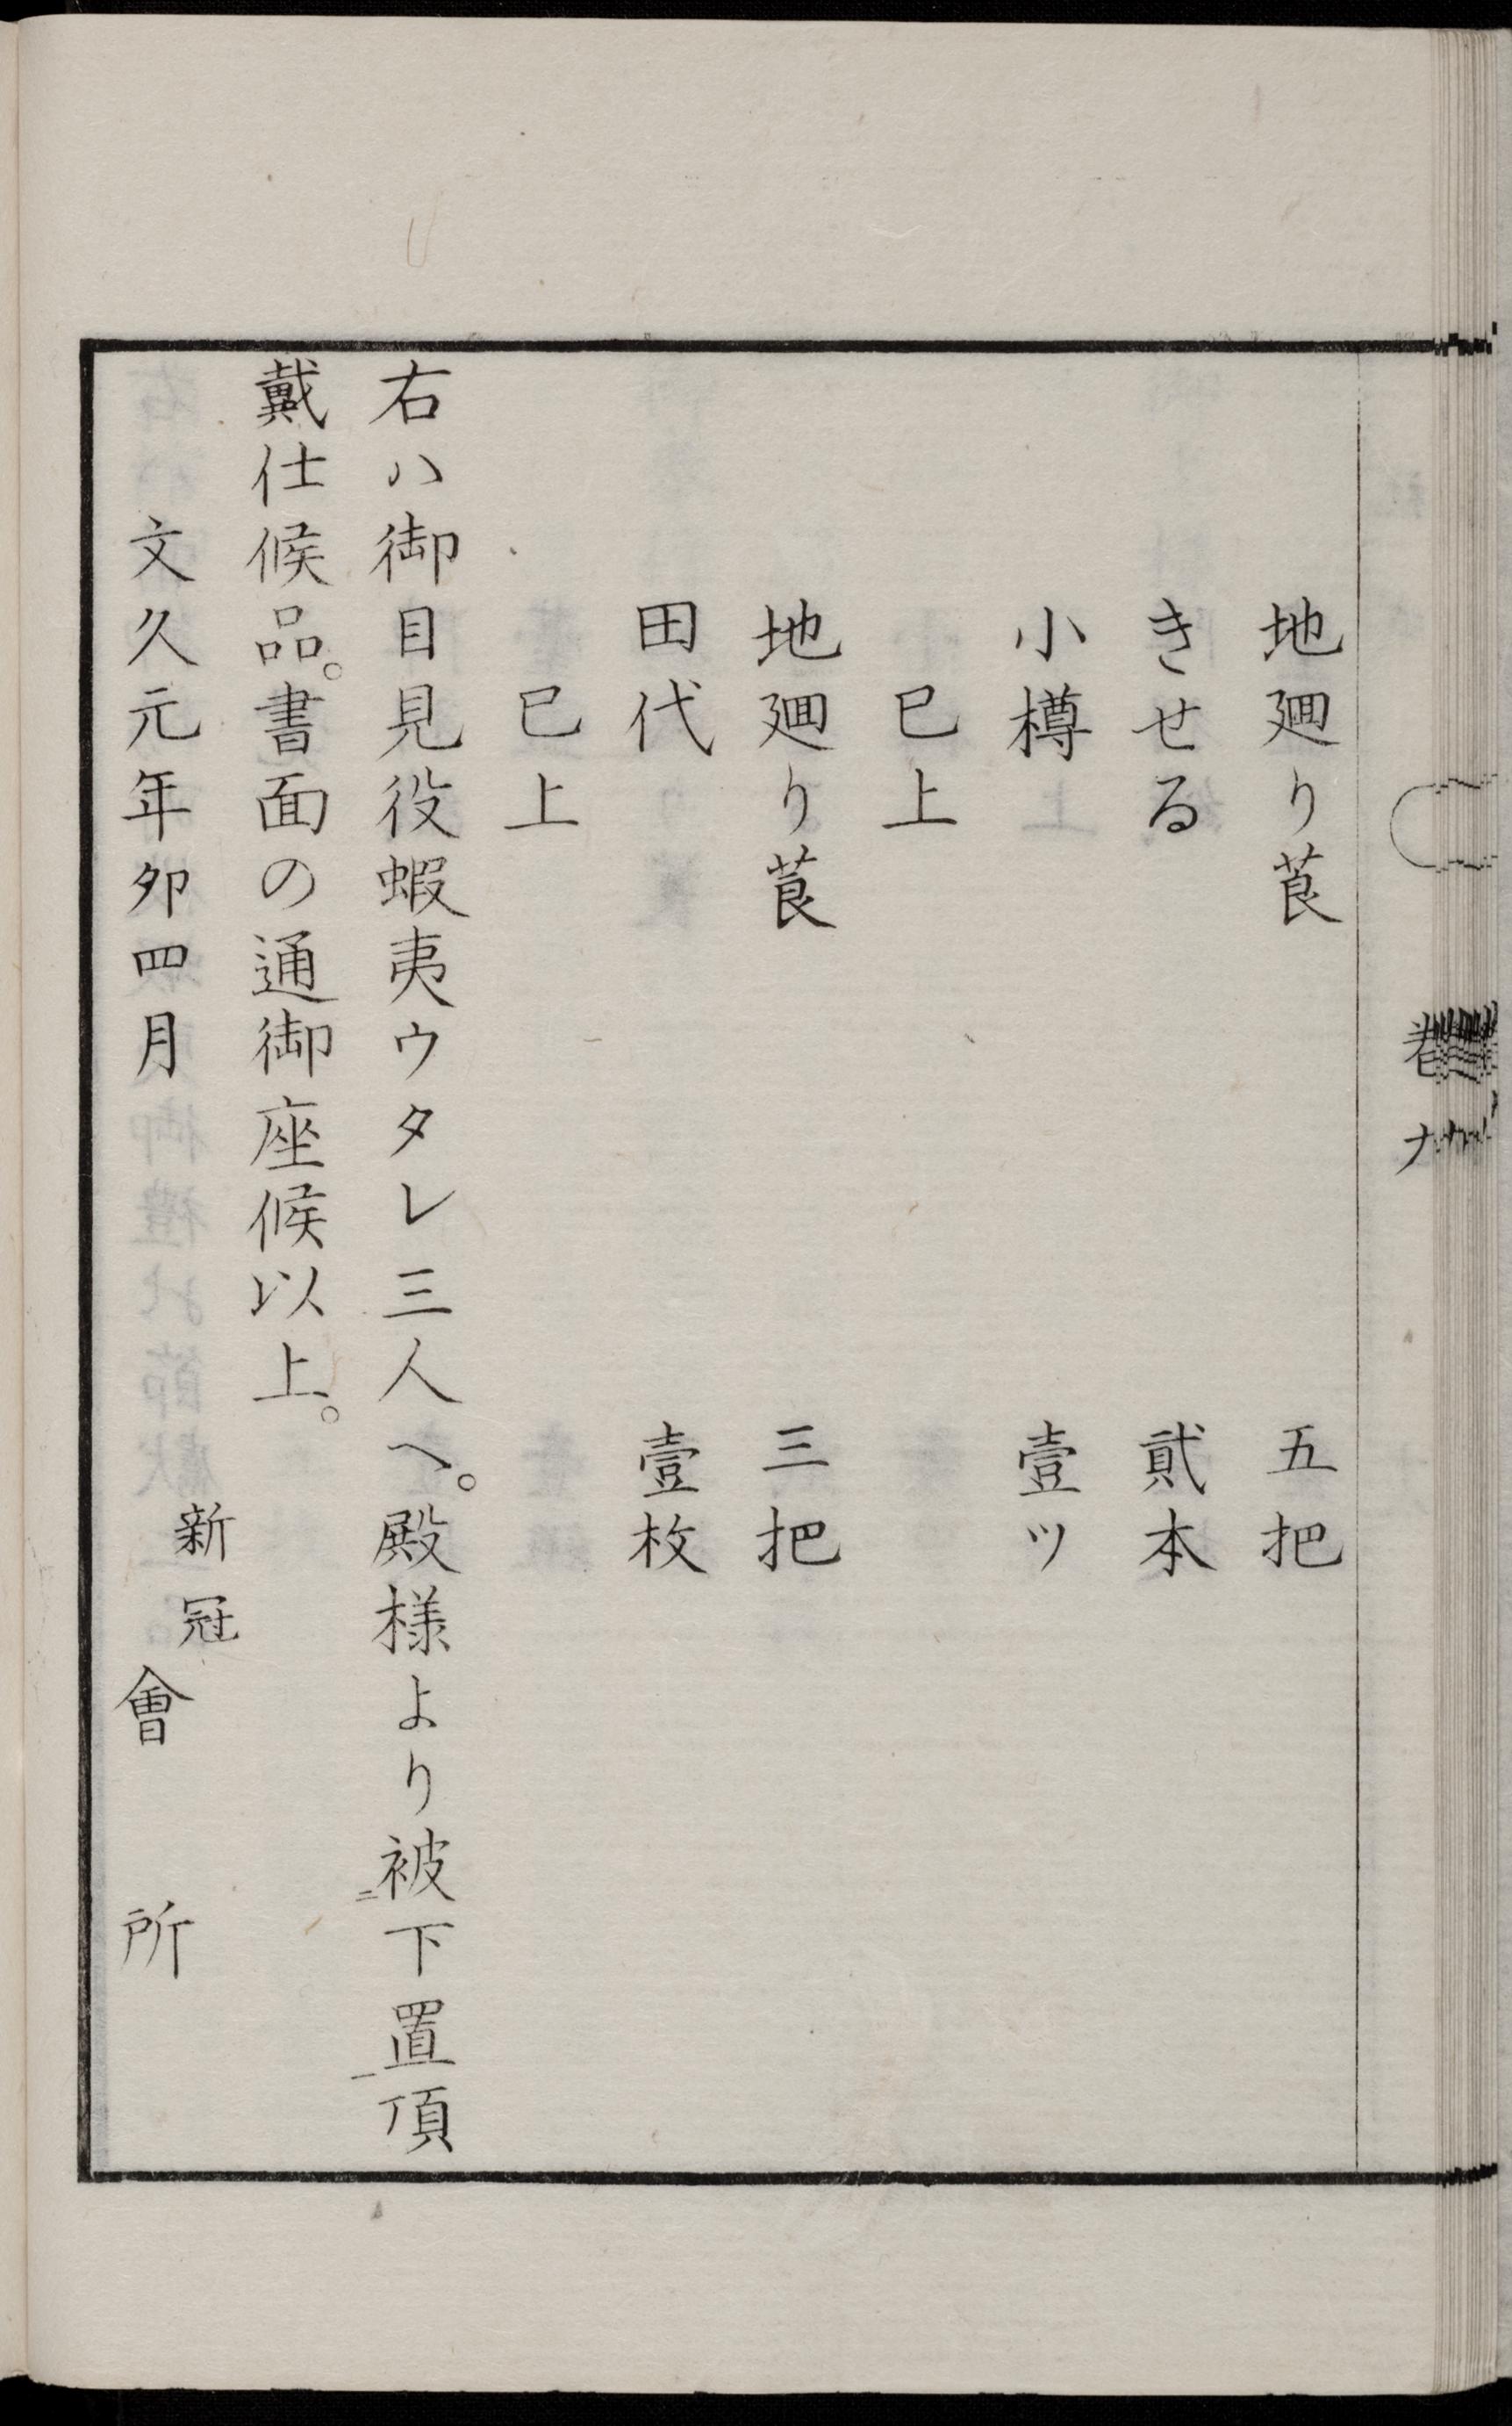 地廻り莨　五把
きせる　貳本
小樽　壹ツ
已上
地廻り莨　三把
田代　壹枚
已上
右ハ御目見役蝦夷ウタレ三人へ。殿様より被㆓下置㆒頂
戴仕候品。書面の通御座候以上。
文久元年夘四月
新冠
會所